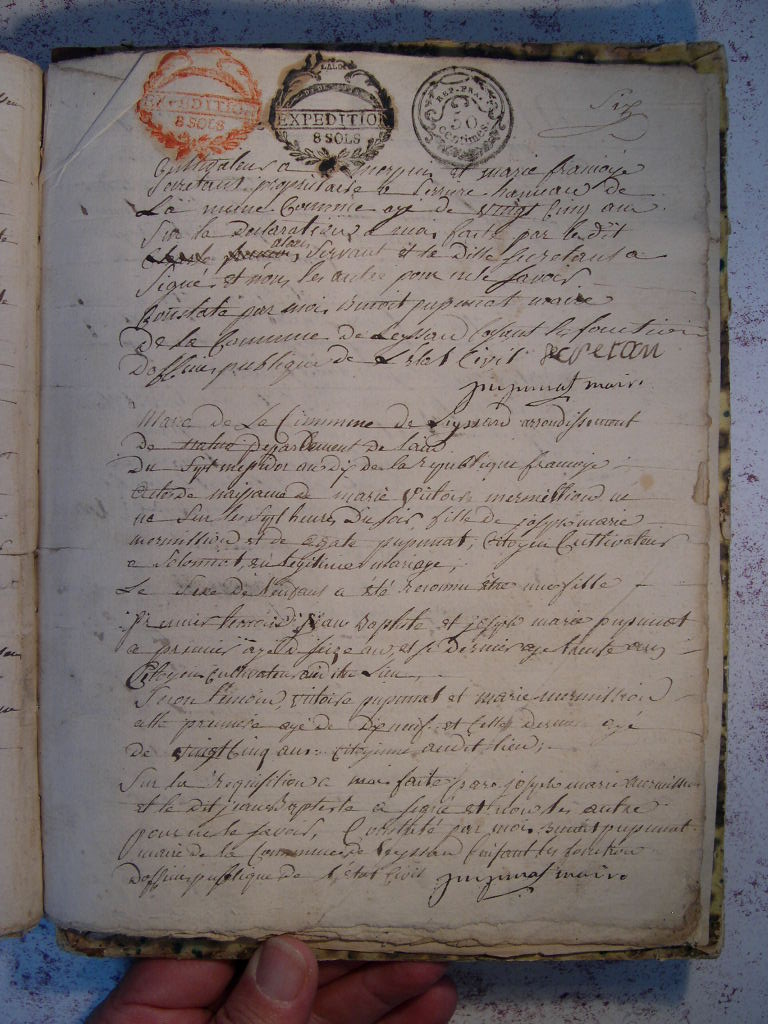 LA LOI
EXPEDITION
8 SOLS
EXPEDITION
8 SOLS
REP. FRA.
50
centimes
Six
a et marie françoise
Secretant propriétaire a hameau de
La meme Commune agé de vingt Cinq ans
Sur la Declaration a moi faite par le dit
Servant et le ditte Secretant a
Signé et nous les autre pour ne le savoir
Constate par moi Benoit pupunat maire
De la Commune de Leyssard fesant les fonction
D'officier publique de L'état Civil secretan
pupunat maire
Mairie de La Commune de Leyssard arrondissement
de nantua Departement de l'ain
Du messidor an dix de la republique françoise
Acte de naissance de marie victoire mermillion né
heures Du soir, fille de joseph marie
mermillion et de agate pupunat, Citoyen Cultivateur
a Solomiat, en legitime mariage,
Le Sexe de l'enfant a été reconnu être une fille
Premier temoin, jean Baptiste et joseph marie pupunat
a premier agé de seize ans, et le Dernier agé trente ans
Citoyen Cultivateur au dit Lieu,
Second temoin, victoire pupunat et marie mermillion
elle premiere agé de Dixneuf et Celle Derniere agé
de vingt Cinq ans citoyenne audit lieu,
Sur la requisition a moi faite par joseph marie mermillion
et le dit jean Baptiste a signé et non les autre
pour ne le savoir, Constaté par moi Benoit pupunat
maire de la Commune de Leyssard faisant les fonction
D'officier publique de L'état Civil pupunat maire